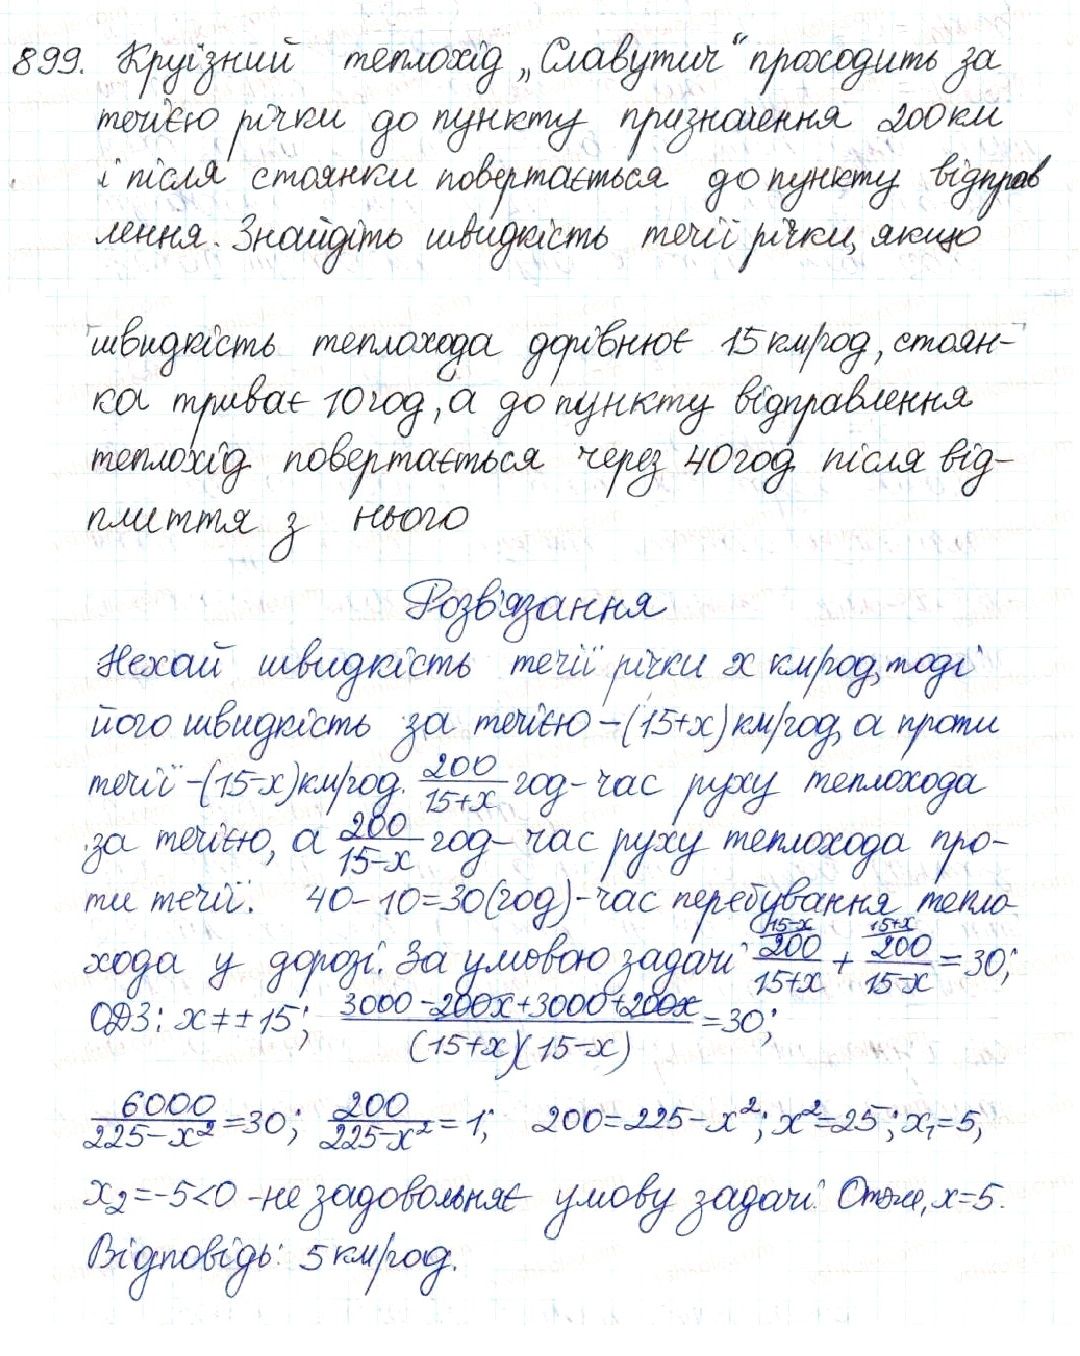 899. Круїзний теплохід „Славутич“ проходить за
течією річки до пункту призначення 200км
і після стоянки повертається до пункту відправ
лення. Знайдіть швидкість течії річки, якщо
швидкість теплохода дорівнює 15 км/год, стоян-
ка триває 10 год, а до пункту відправлення
теплохід повертається через 40 год після від-
плиття з нього
Розв'язання
Нехай швидкість течії річки x км/год, тоді
його швидкість за течією – (15+x) км/год, а проти
течії – (15-x) км/год. 200/(15+x) год – час руху теплохода
за течією, а 200/(15-x) год – час руху теплохода про-
ти течії. 40-10=30(год) – час перебування тепло-
хода у дорозі. За умовою задачі 200/(15+x) (15-x + 200/(15-x) (15+x = 30;
ОДЗ: x≠±15; (3000-200x+3000+200x)/((15+x)(15-x)) = 30;
6000/(225-x²) = 30; 200/(225-x²) = 1; 200=225-x²; x²=25; x₁=5,
x₂=-5<0 -не задовольняє умову задачі. Отже, x=5.
Відповідь: 5 км/год.